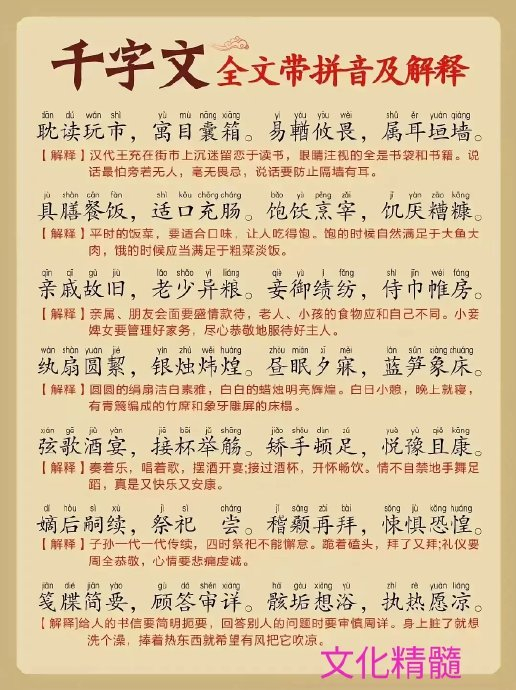 千字文 全文带拼音及解释
dān dú wán shì, yù mù náng xiāng yì yóu yōu wèi, zhǔ ěr yuán qiáng
耽读玩市，寓目囊箱。易輶攸畏，属耳垣墙。
【解释】汉代王充在街市上沉迷留恋于读书，眼睛注视的全是书袋和书籍。说
话最怕旁若无人，毫无畏忌，说话要防止隔墙有耳。
jù shàn cān fàn shì kǒu chōng cháng bǎo yù pēng zǎi jī yàn zāo kāng
具膳餐饭，适口充肠。饱饫烹宰，饥厌糟糠。
【解释】平时的饭菜，要适合口味，让人吃得饱。饱的时候自然满足于大鱼大
肉，饿的时候应当满足于粗菜淡饭。
qīn qī gù jiù lǎo shào yì liáng qiè yù jì fǎng shì jīn wéi fáng
亲戚故旧，老少异粮。妾御绩纺，侍巾帷房。
【解释】亲属、朋友会面要盛情款待，老人、小孩的食物应和自己不同。小妾
婢女要管理好家务，尽心恭敬地服待好主人。
wán shàn yuán jié yín zhú wěi huáng zhòu mián xī mèi lán sǔn xiàng chuáng
纨扇圆絜，银烛炜煌。昼眠夕寐，蓝笋象床。
【解释】圆圆的绢扇洁白素雅，白白的蜡烛明亮辉煌。白日小憩，晚上就寝，
有青篾编成的竹席和象牙雕屏的床榻。
xián gē jiǔ yàn jiē bēi jǔ shāng jiǎo shǒu dùn zú yuè yù qiě kāng
弦歌酒宴，接杯举觞。矫手顿足，悦豫且康。
【解释】奏着乐，唱着歌，摆酒开宴;接过酒杯，开怀畅饮。情不自禁地手舞足
蹈，真是又快乐又安康。
dí hòu sì xù jì sì cháng jī sǎng zài bài sǒng jù kǒng huáng
嫡后嗣续，祭祀 尝。稽颡再拜，悚惧恐惶。
【解释】子孙一代一代传续，四时祭祀不能懈怠。跪着磕头，拜了又拜;礼仪要
周全恭敬，心情要悲痛虔诚。
jiān dié jiǎn yào gù dá shěn xiáng hái gòu xiǎng yù zhí rè yuàn liáng
笺牒简要，顾答审详。骸垢想浴，执热愿凉。
【解释】给人的书信要简明扼要，回答别人的问题时要审慎周详。身上脏了就想
洗个澡，捧着热东西就希望有风把它吹凉。
文化精髓